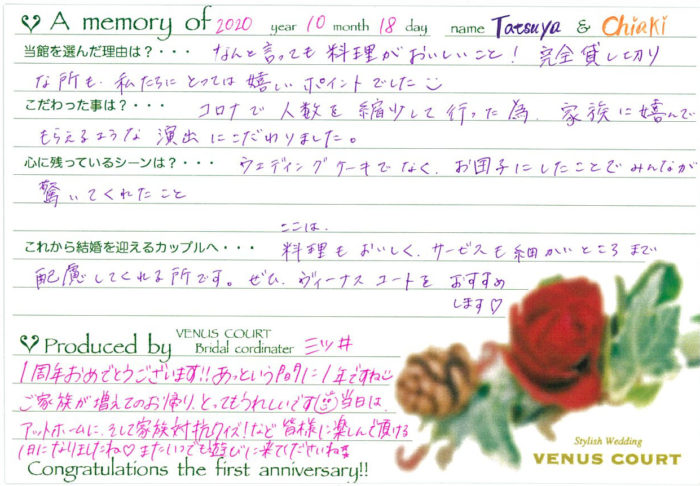 A memory of 2020 year 10 month 18 day name Tatsuya & Chiaki
当館を選んだ理由は？・・・ なんと言っても料理がおいしいこと！ 完全貸し切り
な所も、私たちにとっては嬉しいポイントでした
こだわった事は？・・・ コロナで人数を縮少して行った為、家族に喜んで
もらえるような演出にこだわりました。
心に残っているシーンは？・・・ ウェディングケーキでなく、お団子にしたことでみんなが
驚いてくれたこと
ここは、
これから結婚を迎えるカップルへ・・・ 料理もおいしく、サービスも細かいところまで
配慮してくれる所です。ぜひ、ヴィーナスコートをおすすめ
します♡
Produced by VENUS COURT
Bridal cordinater 三ツ井
1周年おめでとうございます!!あっという間に1年ですね
ご家族が増えてのお帰り、とってもうれしいです 当日は、
アットホームに、そして家族対抗クイズ！など皆様に楽しんで頂ける
1日になりましたね♡またいつでも遊びに来てくださいね
Congratulations the first anniversary!!
Stylish Wedding
VENUS COURT